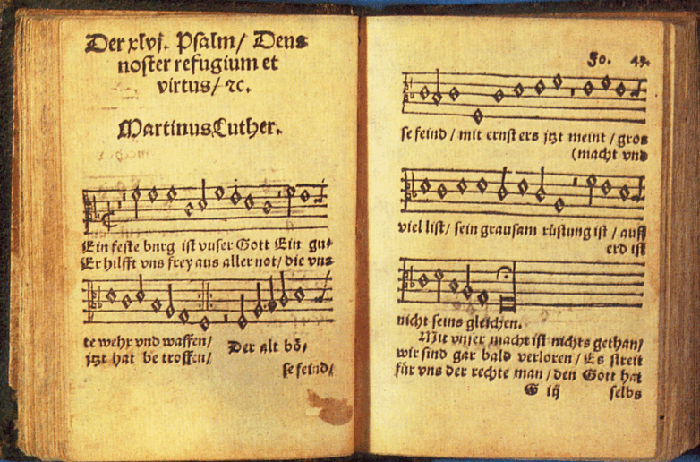 Der xlvj. Psalm/ Deus
noster refugium et
virtus/ ꝛc.
Martinus Luther.
Ein feste burg ist vnser Gott Ein gu⸗
Er hilfft vns frey aus aller not/ die vns
te wehr vnd waffen/
jtzt hat be troffen/
Der alt bö⸗
se feind/
Fo. 43.
se feind/ mit ernst ers jtzt meint/ gros
(macht vnd
viel list/ sein grausam rüstung ist/ auff
erd ist
nicht seins gleichen.
Mit vnser macht ist nichts gethan/
wir sind gar bald verloren/ Es streit
für vns der rechte man/ den Gott hat
G iij
selbs